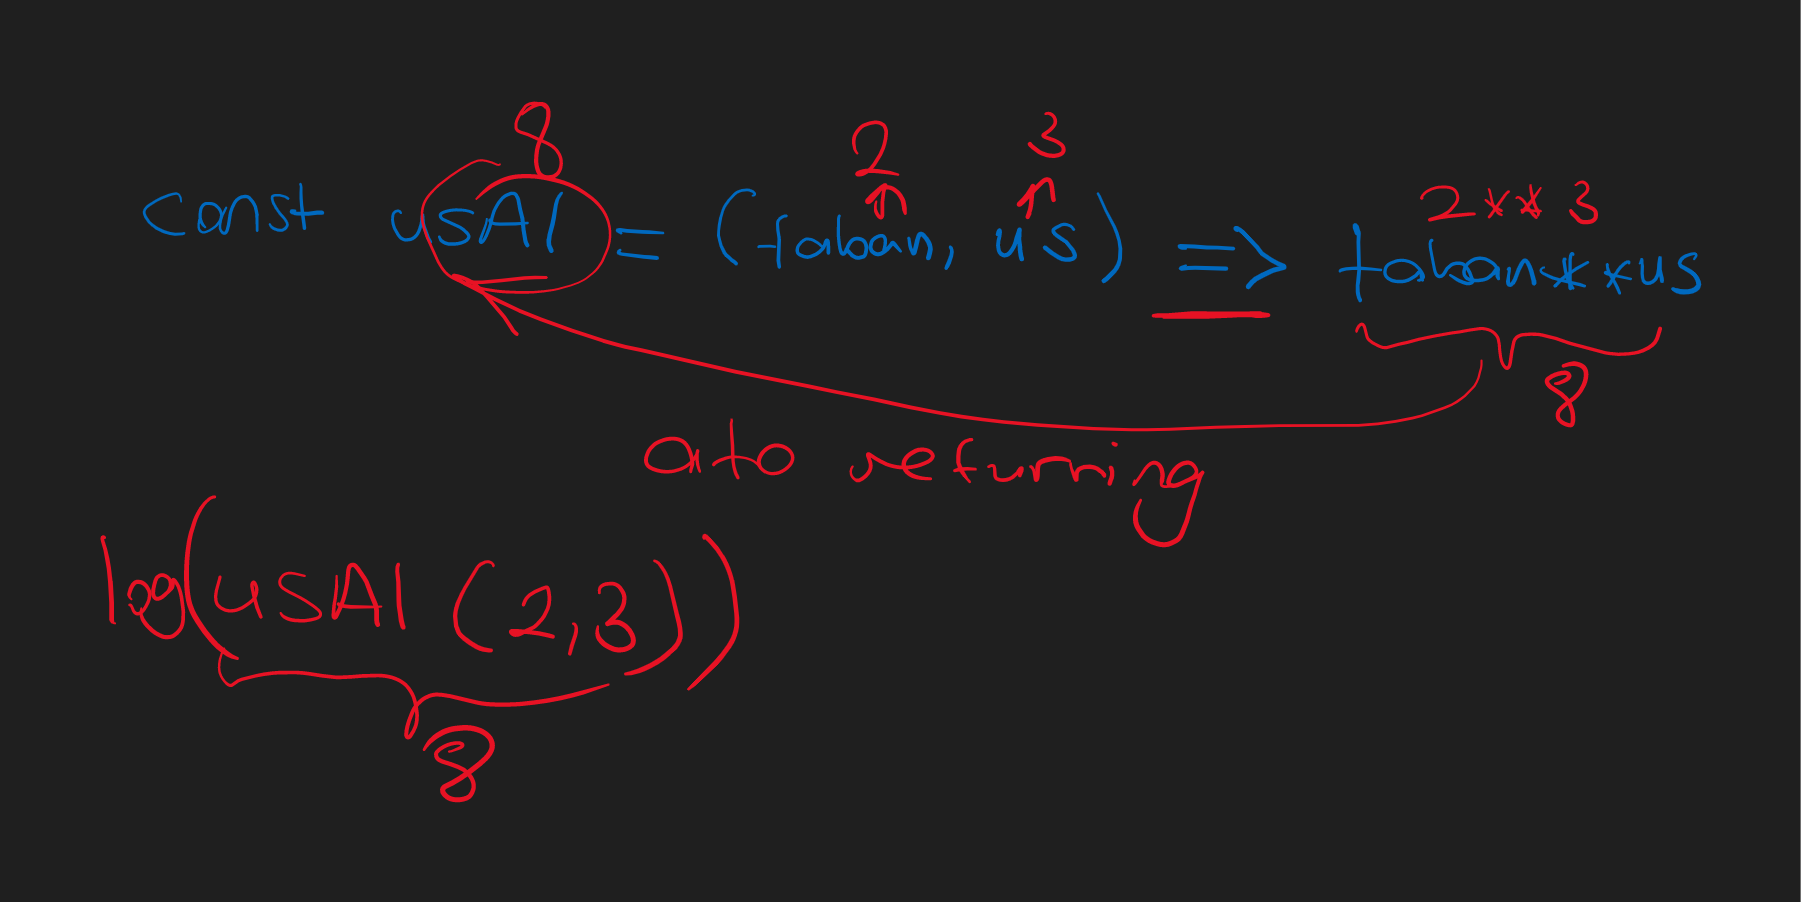 8 2 3
2**3
const usAl = (taban, us) => taban**us
8
oto returning
log(usAl (2,3))
8